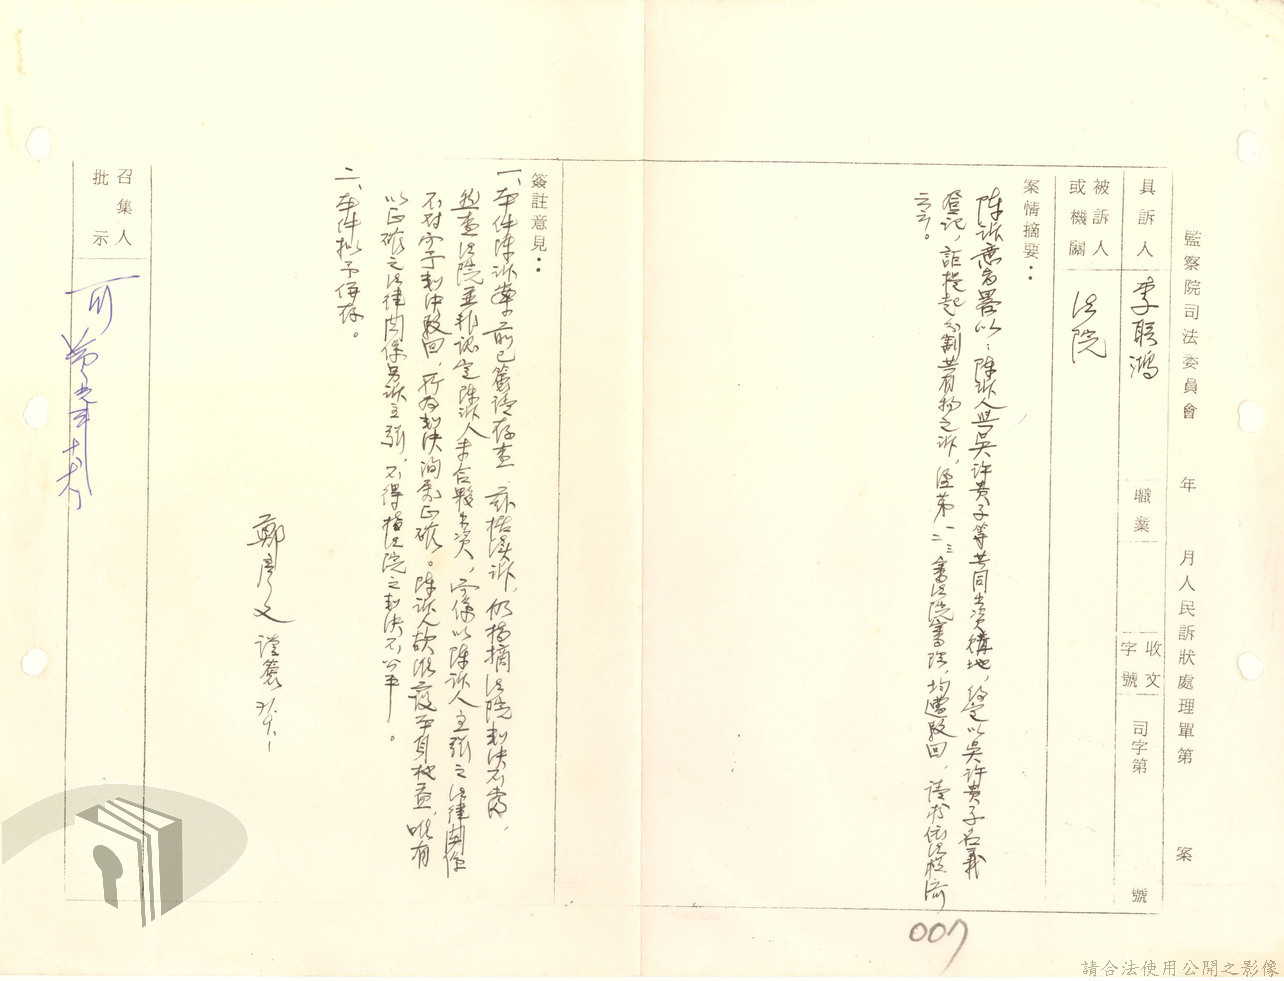 監察院司法委員會 年 月人民訴狀處理單第 案
具訴人 李聯鴻 職業 收文字號 司字第 號
被訴人或機關 法院
案情摘要：
陳訴意旨略以：陳訴人與吳許貴子等共同出資購地，約定以吳許貴子名義
登記，詎提起分割共有物之訴，經第一二三審法院審理，均遭駁回，請求依法救濟
云云。
簽註意見：
一、本件陳訴案前已簽請存查 茲據續訴，仍指摘法院判決不當，
然查法院並非認定陳訴人未合夥出資，實係以陳訴人主張之法律關係
不對而予判決駁回，所為判決洵屬正確。陳訴人欲維護本身權益，唯有
以正確之法律關係另訴主張，不得指法院之判決不公平。
二、本件擬予併存。
鄭彥文 謹簽
召集人批示
可
007
請合法使用公開之影像